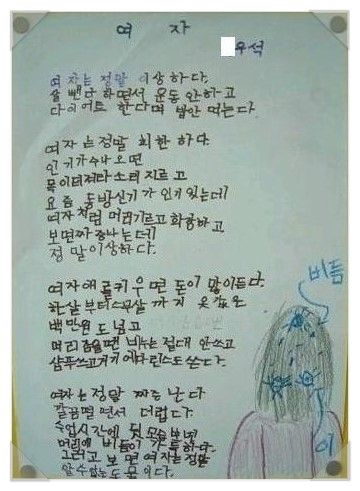 여자
우석
여자는 정말 이상하다.
살 뺀다 하면서 운동 안하고
다이어트 한다며 밥안 먹는다.
여자는 정말 희한 하다.
인기가수나오면
목이터져라 소리 지르고
요즘 동방신기가 인기 있는데
여자처럼 머리기르고 화장하고
보면짜증나는데
정말이상하다.
여자애를키우면 돈이 많이든다.
한살부터스무살까지 옷값은
백만원 도넘고
머리 감을땐 비누는 절대 안쓰고
샴푸쓰고거기에다린스도쓴다.
여자는 정말 짜증난다
깔끔떨면서 더럽다.
수업시간에 뒷모습보면
머리에 비듬이 가득하다.
그러고 보면 여자는정말
알수없는동물이다.
비듬
이